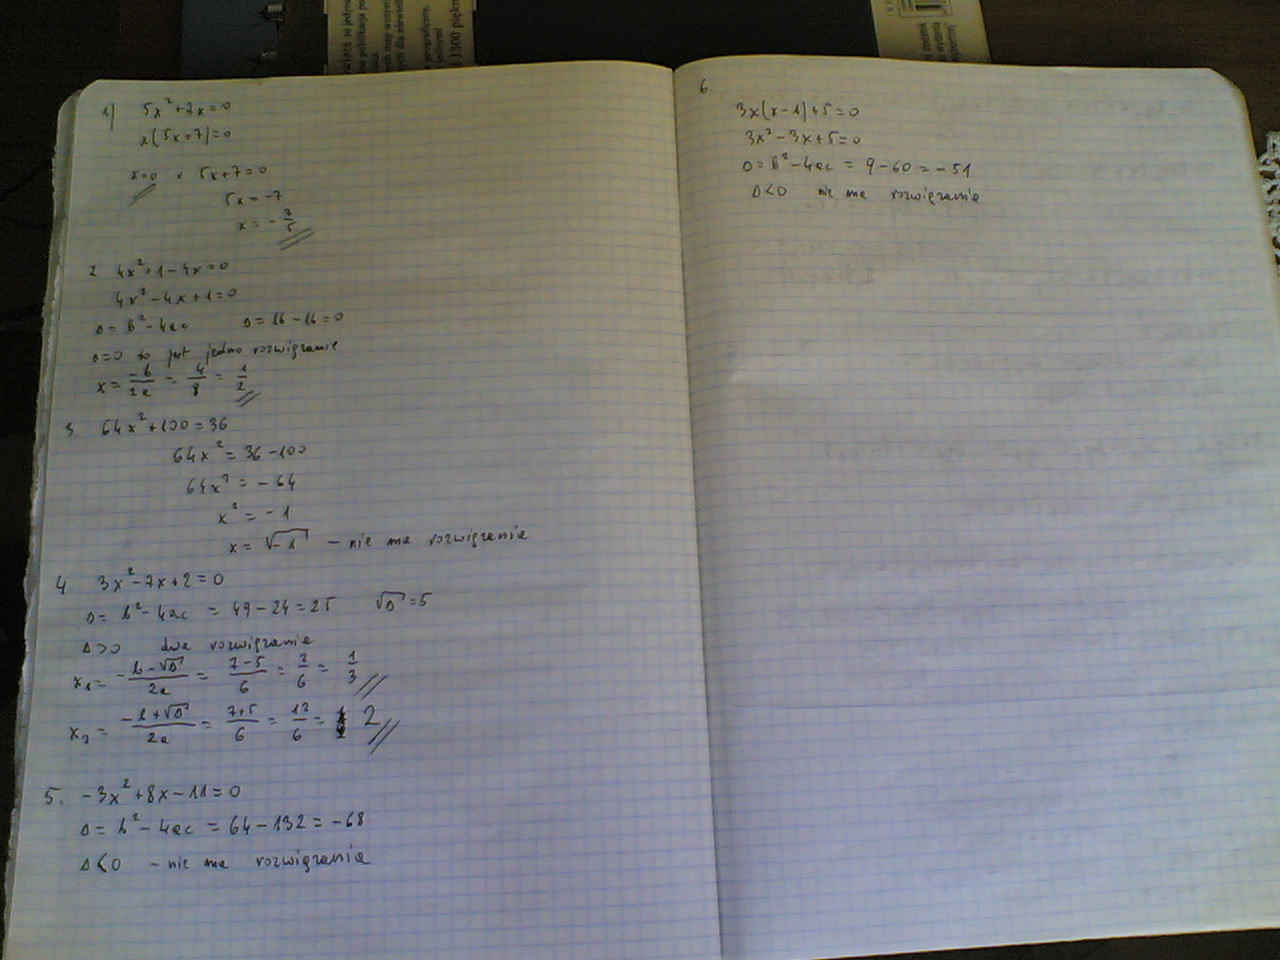 1) 5x²+7x=0
x(5x+7)=0
x=0 v 5x+7=0
5x=-7
x=-7/5
2 4x²+1-4x=0
4x²-4x+1=0
Δ=b²-4ac Δ=16-16=0
Δ=0 to jest jedno rozwiązanie
x=-b/2a=4/8=1/2
3. 64x²+100=36
64x²=36-100
64x²=-64
x²=-1
x=√-1 - nie ma rozwiązania
4. 3x²-7x+2=0
Δ=b²-4ac=49-24=25 √Δ=5
Δ>0 dwa rozwiązania
x₁=-b-√Δ/2a=7-5/6=2/6=1/3
x₂=-b+√Δ/2a=7+5/6=12/6=2
5. -3x²+8x-11=0
Δ=b²-4ac=64-132=-68
Δ<0 - nie ma rozwiązania
6.
3x(x-1)+5=0
3x²-3x+5=0
Δ=b²-4ac=9-60=-51
Δ<0 nie ma rozwiązania